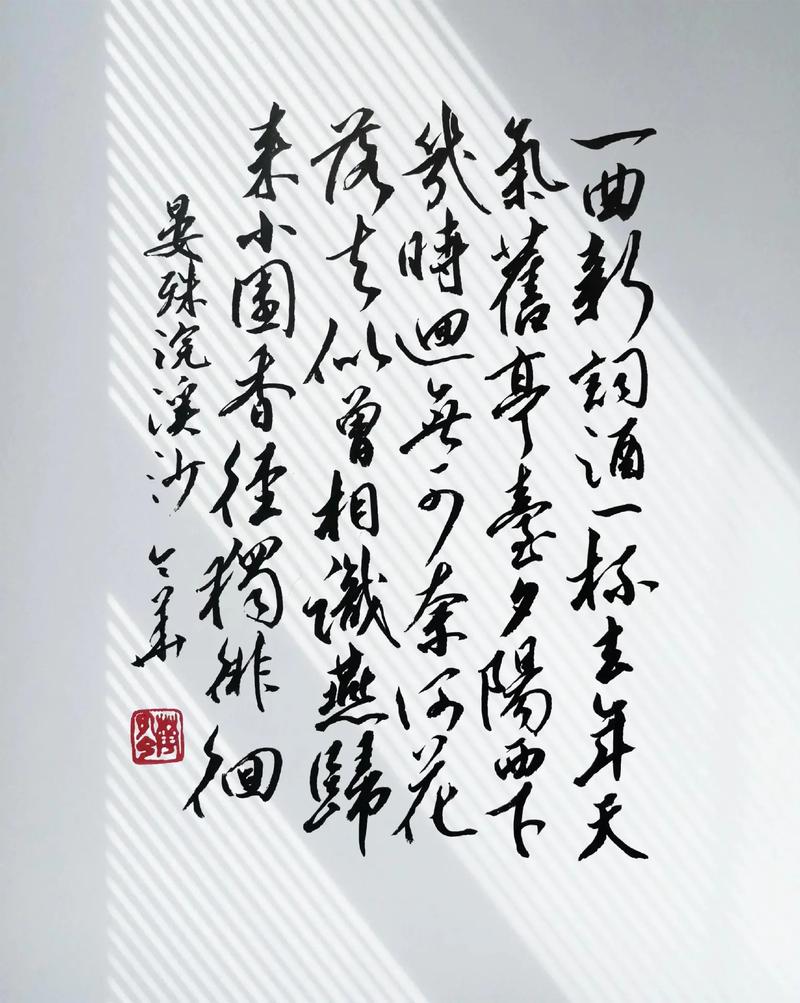 一曲新詞酒一杯去年天
氣舊亭臺夕陽西下
幾時迴無可奈何花
落去似曾相識燕歸
来小園香徑獨徘徊
晏殊浣溪沙